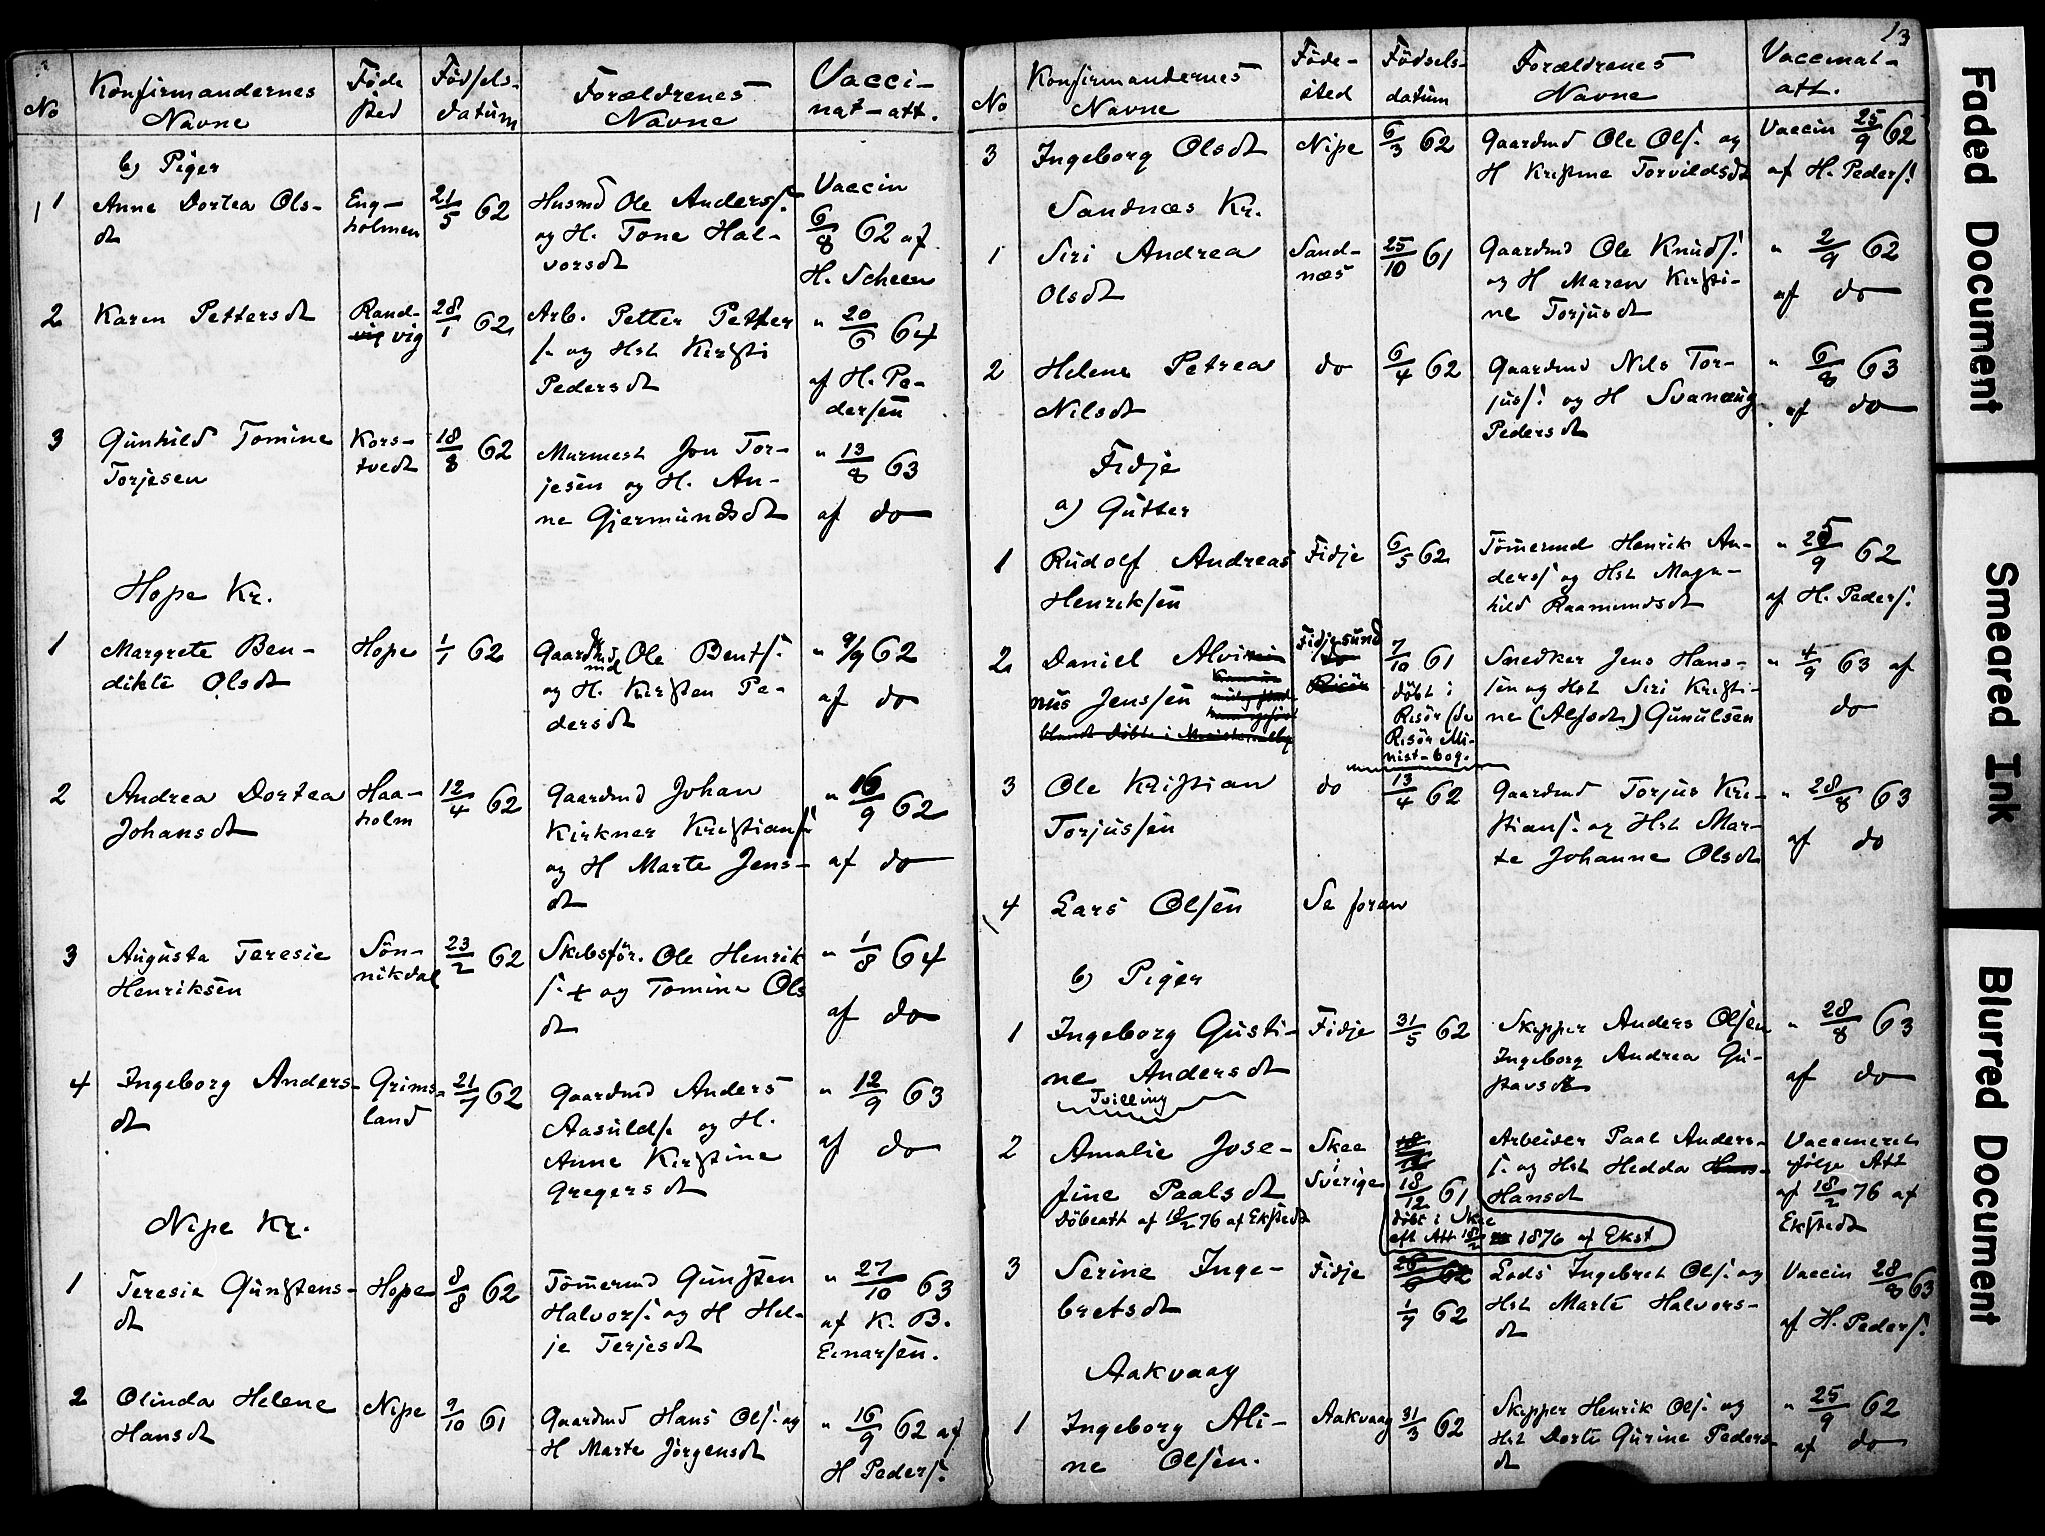 No
Konfirmandernes
Navne
Føde
sted
Fødsels-
datum
Forældrenes
Navne
Vacci-
nat-att.
b) Piger
1
Anne Dortea Ols-
dt
Eng-
holmen
21/5 62
Husmd Ole Anders/.
og H. Tone Hal-
vorsdt
Vaccin
6/8 62 af
H. Scheen
2
Karen Pettersdt
Rand-
vig
28/1 62
Arb. Petter Petter
s. og Hst Kirsti
Pedersdt
" 20/6 64
af H. Pe-
dersen
3
Gunhild Tomine
Torjesen
Kors-
tvedt
18/8 62
Murmest Jon Tor-
jesen og H. An-
ne Gjermundsdt
" 13/8 63
af do
Hope Kr.
1
Margrete Ben-
dikte Olsdt
Hope
1/1 62
Gaardmd Ole Bents.
og H. Kirsten Pe-
dersdt
" 9/9 62
af do
2
Andrea Dortea
Johansdt
Haa-
holm
12/4 62
Gaardmd Johan
Kirkner Kristians.
og H Marte Jens-
dt
" 16/9 62
af do
3
Augusta Teresie
Henriksen
Søn-
nikdal
23/2 62
Skibsfør. Ole Henrik
s. + og Tomine Ols
dt
" 1/8 64
af do
4
Ingeborg Anders-
dt
Grims-
land
21/7 62
Gaardmd Anders
Aasulds. og H.
Anne Kirstine
Gregersdt
" 12/9 63
af do
Nipe Kr.
1
Teresia Gunstens-
dt
Hope
8/8 62
Tømermd Gunsten
Halvors. og H Hel-
je Terjesdt
" 27/10 63
af K. B.
Einarsen.
2
Olinda Helene
Hansdt
Nipe
9/10 61
Gaardmd Hans Ols. og
H Marte Jørgensdt
" 16/9 62 af
H Peders.
13
No
Konfirmandernes
Navne
Føde-
sted
Fødsels-
datum
Forældrenes
Navne
Vaccinat-
att.
3
Ingeborg Olsdt
Nipe
6/3 62
Gaardmd Ole Ols. og
H Kristine Torvildsdt
Vaccin 25/9 62
af H. Peders.
Sandnæs Kr.
1
Siri Andrea
Olsdt
Sand-
næs
25/10 61
Gaardmd Ole Knuds.
og H Maren Kirsti-
ne Torjusdt
" 2/9 62
af do
2
Helene Petrea
Nilsdt
do
6/4 62
Gaardmd Nils Tor-
juss. og H Svanaug
Pedersdt
" 6/8 63
af do
Fidje
a) Gutter
1
Rudolf Andreas
Henriksen
Fidje
6/5 62
Tømermd Henrik An-
ders. og Hst Magn-
hild Raamundsdt
" 25/9 62
af H. Peders.
2
Daniel Alvi
nus Jenssen
Fidjesund
7/10 61
døbt i
Risør (se
Risør Mi-
nist-bog.
Snedker Jens Hans-
sen og Hst Siri Kristi-
ne (Alfsdt) Gunulsen
" 4/9 63 af
do
3
Ole Kristian
Torjussen
do
13/4 62
Gaardmd Torjus Kri-
stians. og Hst Mar-
te Johanne Olsdt
" 28/8 63
af do
4
Lars Olsen
Se foran
b) Piger
1
Ingeborg Gusti-
ne Andersdt
Tvilling
Fidje
31/5 62
Skipper Anders Olsen
Ingeborg Andrea Gu-
stavsdt
" 28/8 63
af do
2
Amalie Jose-
fine Paalsdt
Døbeatt af 18/2 76 af Ekstedt
Skee
i
Sverige
18/12 61
døbt i Skee
eft Att 18/2 1876 af Ekst
Arbeider Paal Anders-
s. og Hst Hedda
Hansdt
Vaccineret
ifølge Att
af 18/2 76 af
Ekstedt
3
Serine Inge-
bretsdt
Fidje
1/7 62
Lods Ingebret Ols. og
Hst Marte Halvors-
dt
Vaccin 28/8 63
af H. Peders.
Aakvaag
1
Ingeborg Ali-
ne Olsen.
Aakvaag
31/3 62
Skipper Henrik Ols. og
Hst Dorte Gurine Peders-
dt
" 25/9 62
af do
Faded Document
Smeared Ink
Blurred Document